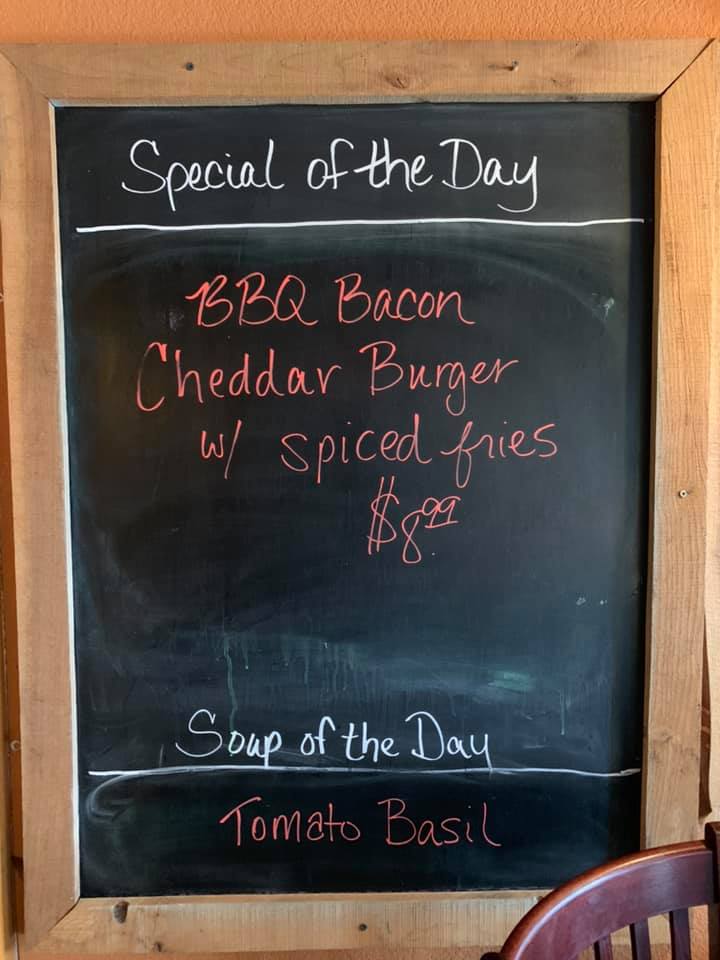 Special of the Day
BBQ Bacon
Cheddar Burger
w/ spiced fries
$8.99
Soup of the Day
Tomato Basil